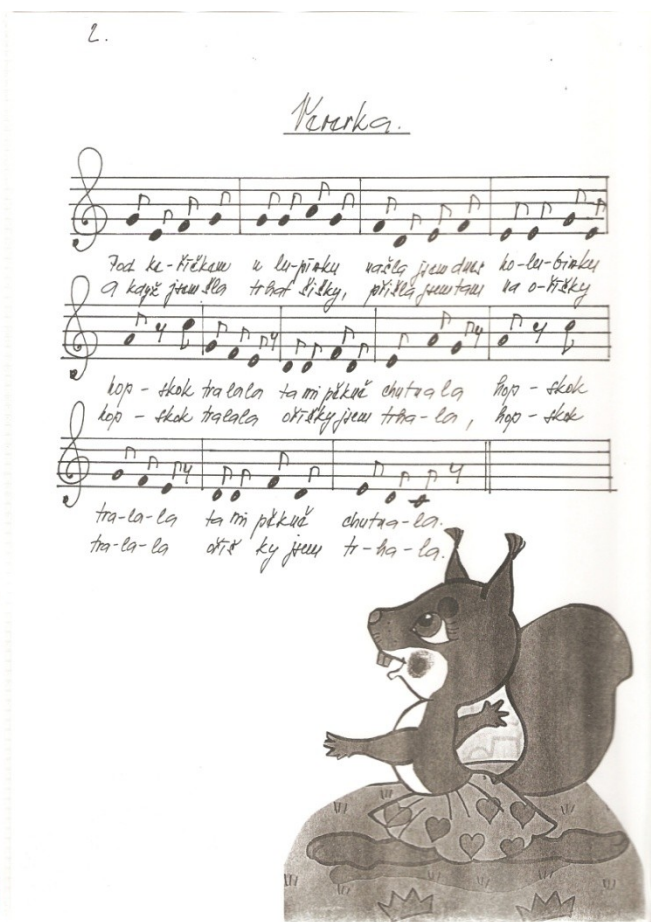 2.
Veverka.
Pod ke-říčkem u lu-pínku našla jsem dnes ho-lu-binku
a když jsem šla trhat šišky, přišla jsem tam na o-říšky
hop - skok tralala ta mi pěkně chutnala hop - skok
hop - skok tralala oříšky jsem trha-la, hop - skok
tra-la-la ta mi pěkně chutna-la.
tra-la-la oříš ky jsem tr-ha-la.